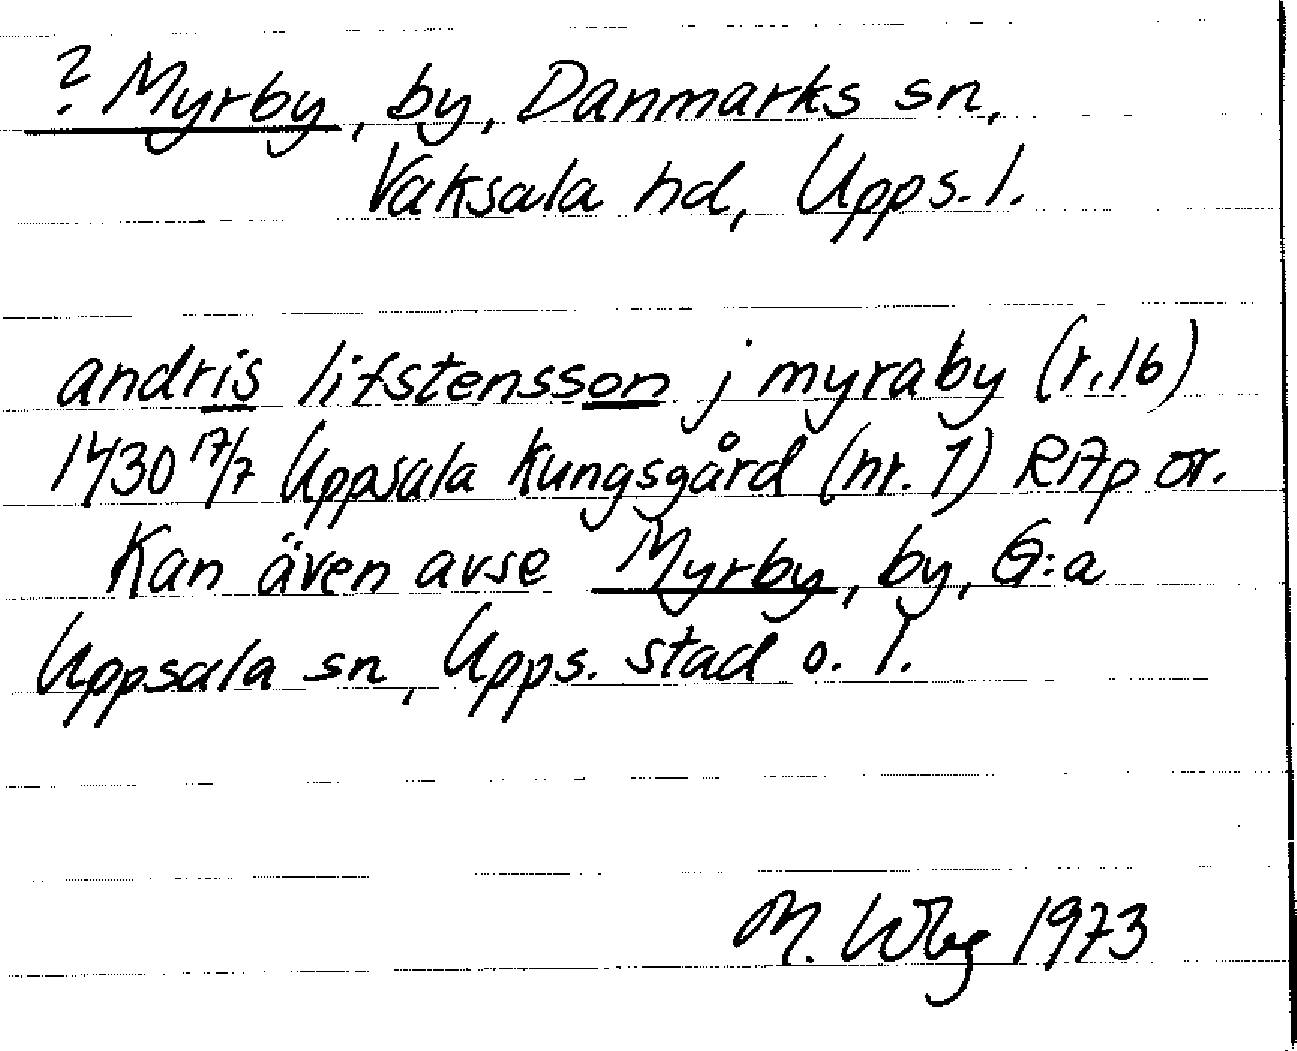 ? Myrby, by, Danmarks sn,
Vaksala hd, Upps. l.
andris lifstensson j myraby (r. 16)
1430 17/7 Uppsala Kungsgård (nr. 1) RAp or.
Kan även avse Myrby, by, G:a
Uppsala sn, Upps. stad o. l.
M. Wbg 1973